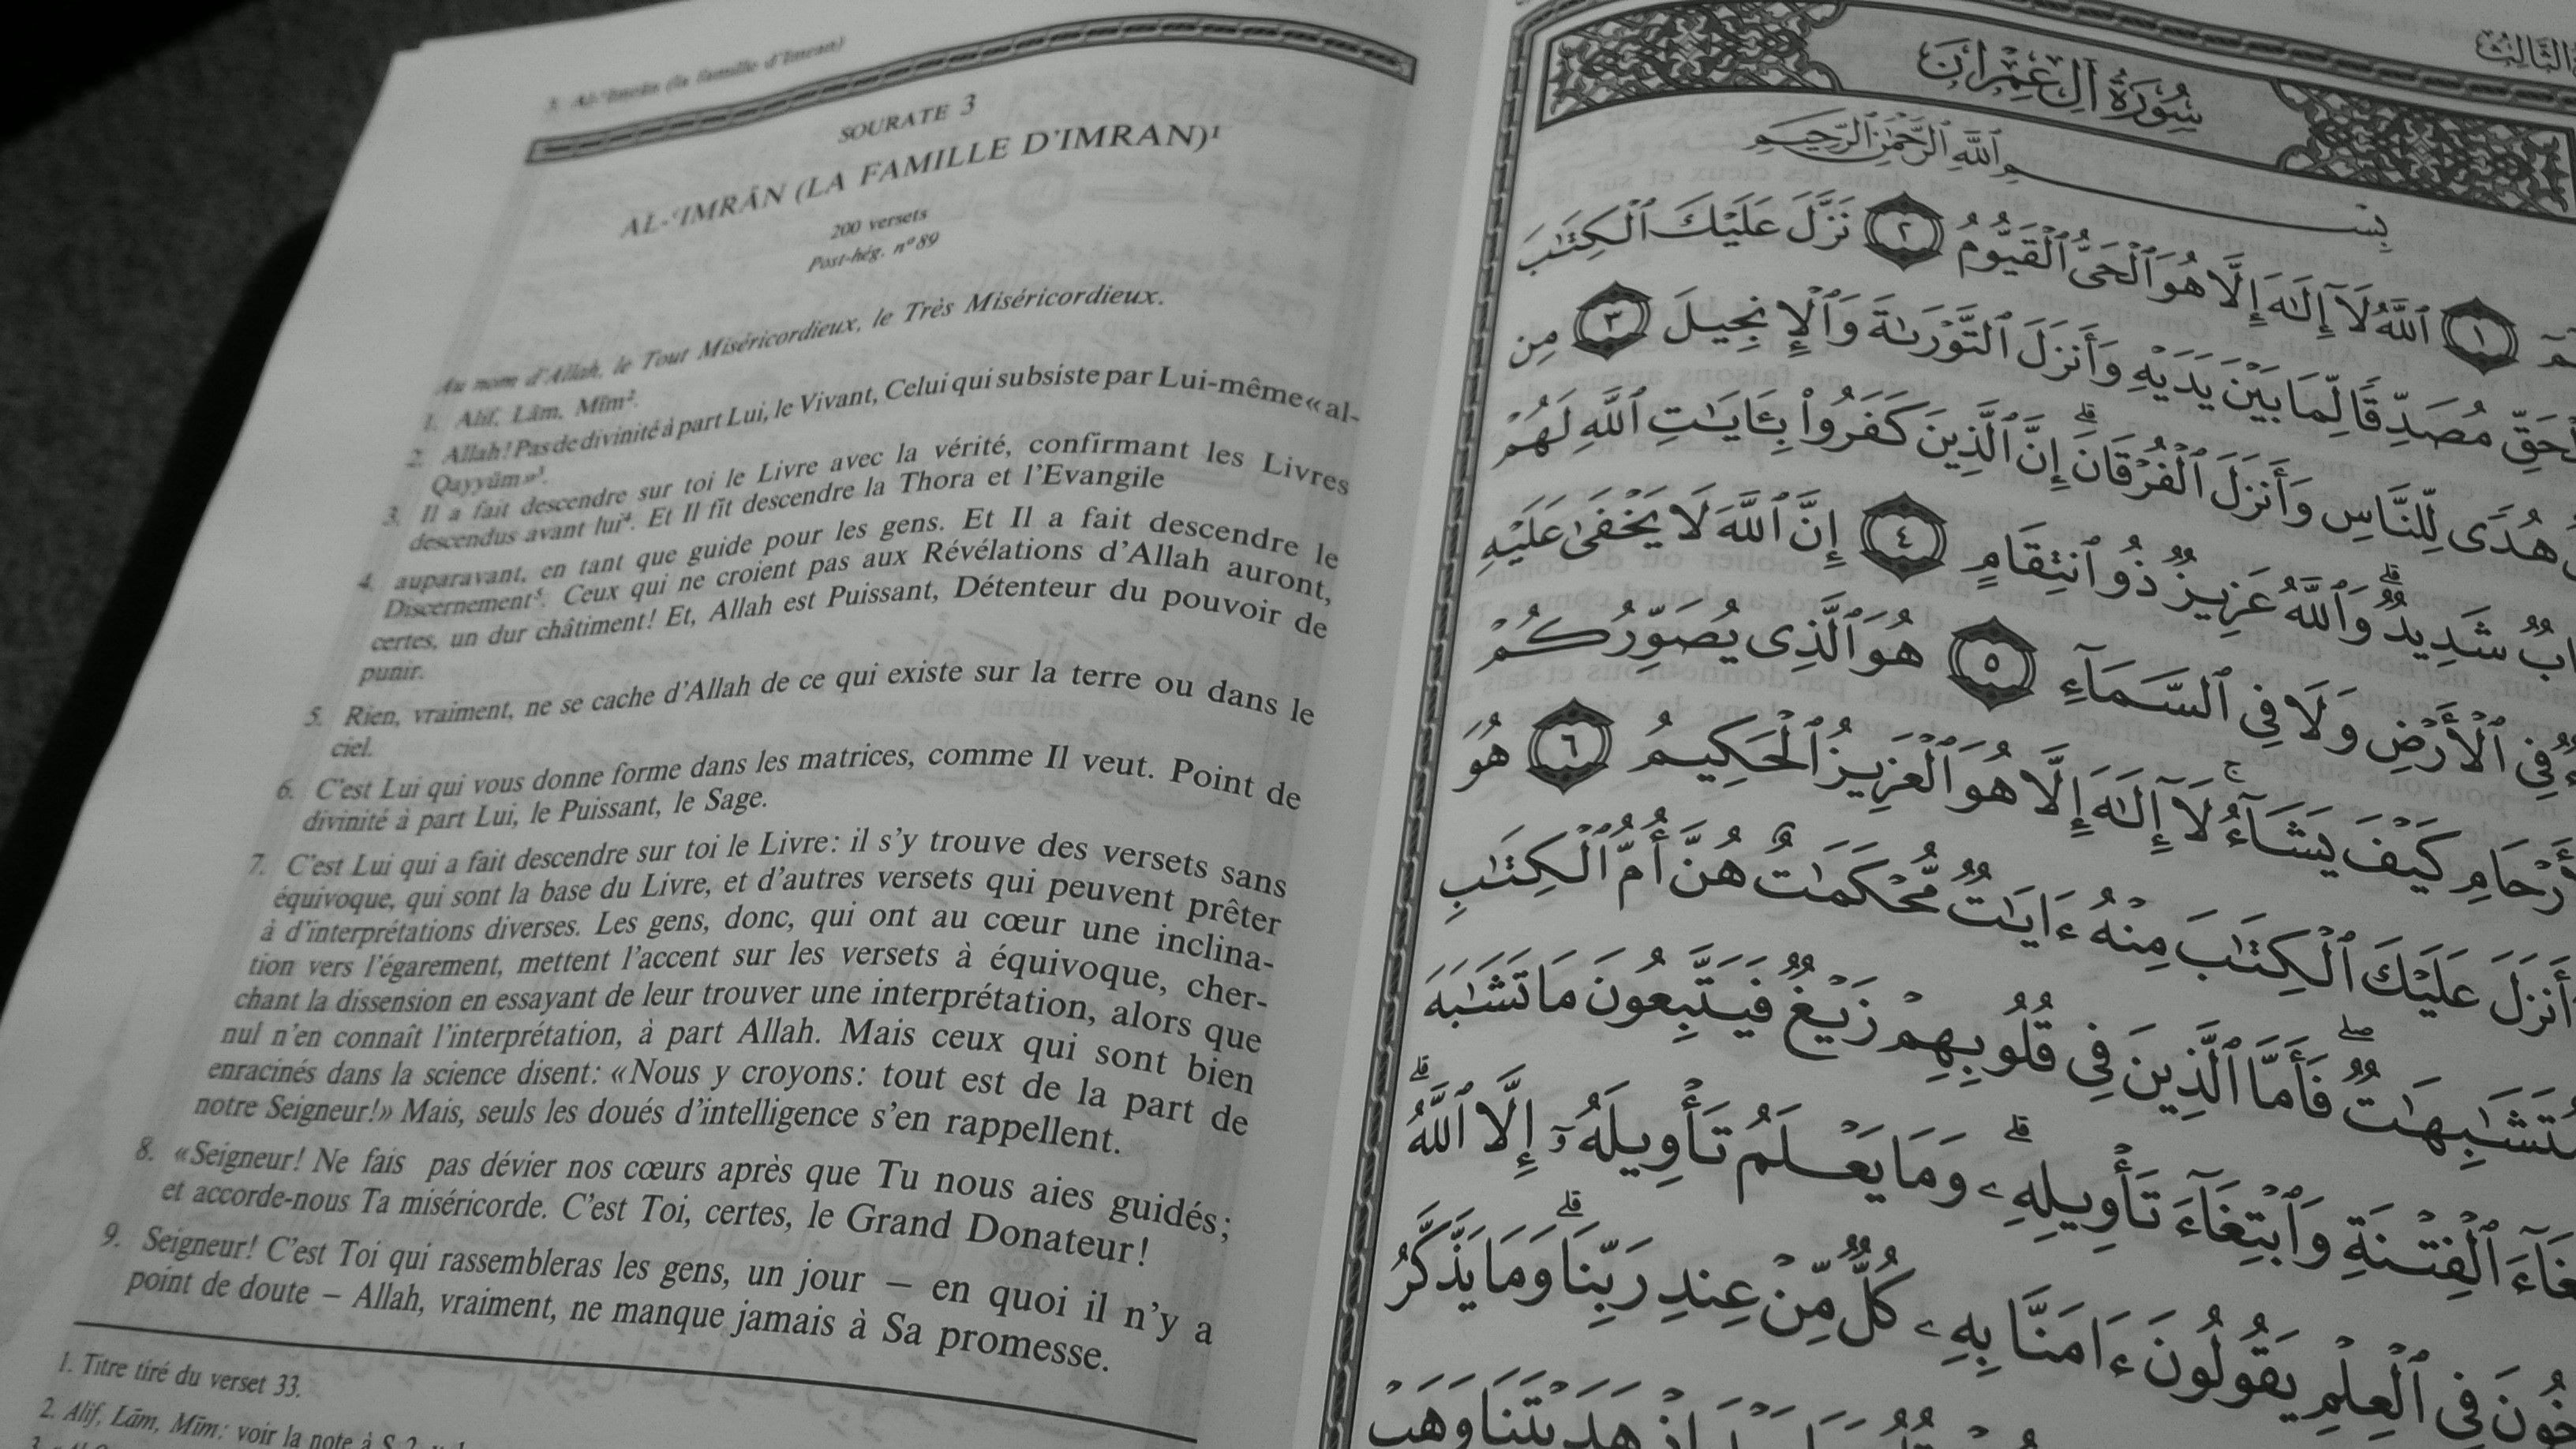 3. Al-'Imrân (la famille d'Imran)
SOURATE 3
AL-'IMRÂN (LA FAMILLE D'IMRAN)¹
200 versets
Post-hég. n° 89
Au nom d'Allah, le Tout Miséricordieux, le Très Miséricordieux.
1. Alif, Lâm, Mîm².
2. Allah! Pas de divinité à part Lui, le Vivant, Celui qui subsiste par Lui-même «al-
Qayyûm»³.
3. Il a fait descendre sur toi le Livre avec la vérité, confirmant les Livres
descendus avant lui⁴. Et Il fit descendre la Thora et l'Evangile
4. auparavant, en tant que guide pour les gens. Et Il a fait descendre le
Discernement⁵. Ceux qui ne croient pas aux Révélations d'Allah auront,
certes, un dur châtiment! Et, Allah est Puissant, Détenteur du pouvoir de
punir.
5. Rien, vraiment, ne se cache d'Allah de ce qui existe sur la terre ou dans le
ciel.
6. C'est Lui qui vous donne forme dans les matrices, comme Il veut. Point de
divinité à part Lui, le Puissant, le Sage.
7. C'est Lui qui a fait descendre sur toi le Livre: il s'y trouve des versets sans
équivoque, qui sont la base du Livre, et d'autres versets qui peuvent prêter
à d'interprétations diverses. Les gens, donc, qui ont au cœur une inclina-
tion vers l'égarement, mettent l'accent sur les versets à équivoque, cher-
chant la dissension en essayant de leur trouver une interprétation, alors que
nul n'en connaît l'interprétation, à part Allah. Mais ceux qui sont bien
enracinés dans la science disent: «Nous y croyons: tout est de la part de
notre Seigneur!» Mais, seuls les doués d'intelligence s'en rappellent.
8. «Seigneur! Ne fais pas dévier nos cœurs après que Tu nous aies guidés;
et accorde-nous Ta miséricorde. C'est Toi, certes, le Grand Donateur!
9. Seigneur! C'est Toi qui rassembleras les gens, un jour – en quoi il n'y a
point de doute – Allah, vraiment, ne manque jamais à Sa promesse.
1. Titre tiré du verset 33.
2. Alif, Lām, Mīm: voir la note à S. 2,
سُورَةُ آلِ عِمْرَانَ
بِسْمِ ٱللَّهِ ٱلرَّحْمَٰنِ ٱلرَّحِيمِ
١ ٱللَّهُ لَآ إِلَٰهَ إِلَّا هُوَ ٱلْحَىُّ ٱلْقَيُّومُ ٢ نَزَّلَ عَلَيْكَ ٱلْكِتَٰبَ
مُصَدِّقًا لِّمَا بَيْنَ يَدَيْهِ وَأَنزَلَ ٱلتَّوْرَىٰةَ وَٱلْإِنجِيلَ ٣ مِن
هُدًى لِّلنَّاسِ وَأَنزَلَ ٱلْفُرْقَانَ ۗ إِنَّ ٱلَّذِينَ كَفَرُوا۟ بِـَٔايَٰتِ ٱللَّهِ لَهُمْ
شَدِيدٌ ۗ وَٱللَّهُ عَزِيزٌ ذُو ٱنتِقَامٍ ٤ إِنَّ ٱللَّهَ لَا يَخْفَىٰ عَلَيْهِ
فِى ٱلْأَرْضِ وَلَا فِى ٱلسَّمَآءِ ٥ هُوَ ٱلَّذِى يُصَوِّرُكُمْ
كَيْفَ يَشَآءُ ۚ لَآ إِلَٰهَ إِلَّا هُوَ ٱلْعَزِيزُ ٱلْحَكِيمُ ٦ هُوَ
أَنزَلَ عَلَيْكَ ٱلْكِتَٰبَ مِنْهُ ءَايَٰتٌ مُّحْكَمَٰتٌ هُنَّ أُمُّ ٱلْكِتَٰبِ
فَأَمَّا ٱلَّذِينَ فِى قُلُوبِهِمْ زَيْغٌ فَيَتَّبِعُونَ مَا تَشَٰبَهَ
ٱلْفِتْنَةِ وَٱبْتِغَآءَ تَأْوِيلِهِۦ ۗ وَمَا يَعْلَمُ تَأْوِيلَهُۥٓ إِلَّا ٱللَّهُ ۗ
فِى ٱلْعِلْمِ يَقُولُونَ ءَامَنَّا بِهِۦ كُلٌّ مِّنْ عِندِ رَبِّنَا ۗ وَمَا يَذَّكَّرُ
إِذْ هَدَيْتَنَا وَهَبْ